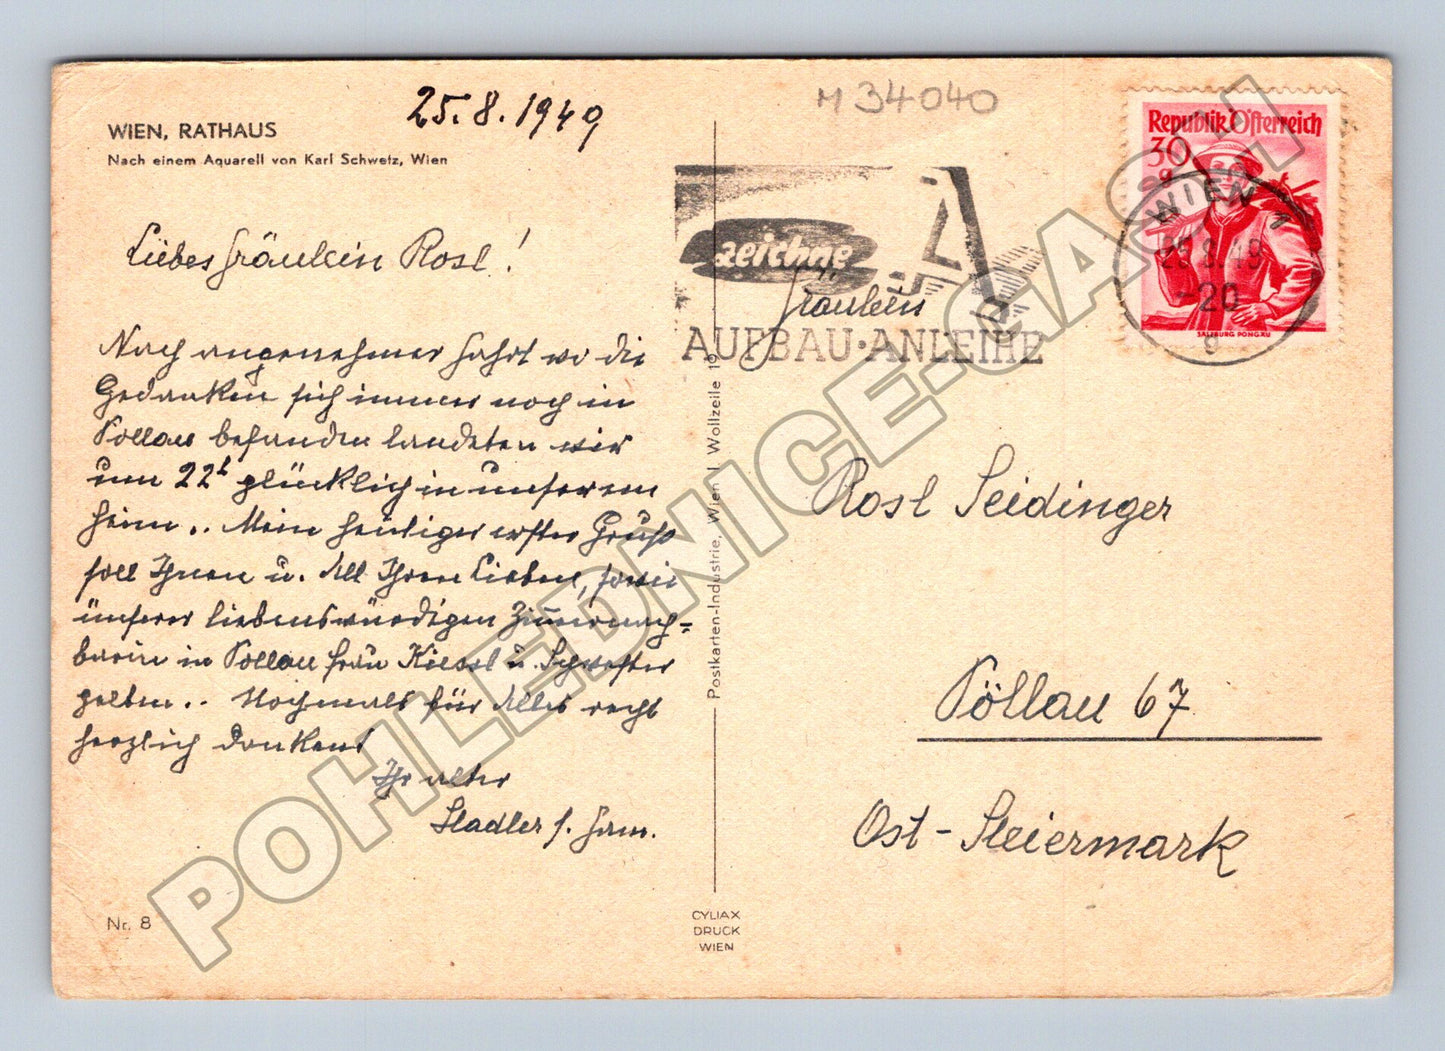 WIEN, RATHAUS
Nach einem Aquarell von Karl Schwetz, Wien
25.8.1949
Liebes Fräulein Rosl!
Nach angenehmer Fahrt wo die
Gedanken sich immer noch in
Pöllau befanden landeten wir
um 22h glücklich in unserem
Heim.. Mein heutiger erster Gruß
soll Ihnen u. All Ihren Lieben, sowie
unserer liebenswürdigen Zimmernach=
barin in Pöllau Frau u. Schwester
gelten.. Nochmals für Alles recht
herzlich dankend
Ihr alter
Stadler s. Fam.
Nr. 8
Postkarten-Industrie, Wien I Wollzeile 19
CYLIAX
DRUCK
WIEN
M 34040
zeichne
AUFBAU·ANLEIHE
Republik Österreich
30
g
SALZBURG PONGAU
WIEN 1
25.8.49
-20
Fräulein
Rosl Seidinger
Pöllau 67
Ost-Steiermark
POHLEDNICE-GASH